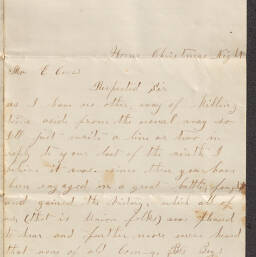 Home Christmas Night
Mr. E.
Respected Sir
as I have no other way of killing
time aside from the usual way so
Ill just write a line or two in
reply to your last of the ninth I
believe it was. since then you have
been engaged in a great battle fought
and gained the victory. which all of
us (that is Union folks) was pleased
to hear and further more were heard
that none of old Co. Boys